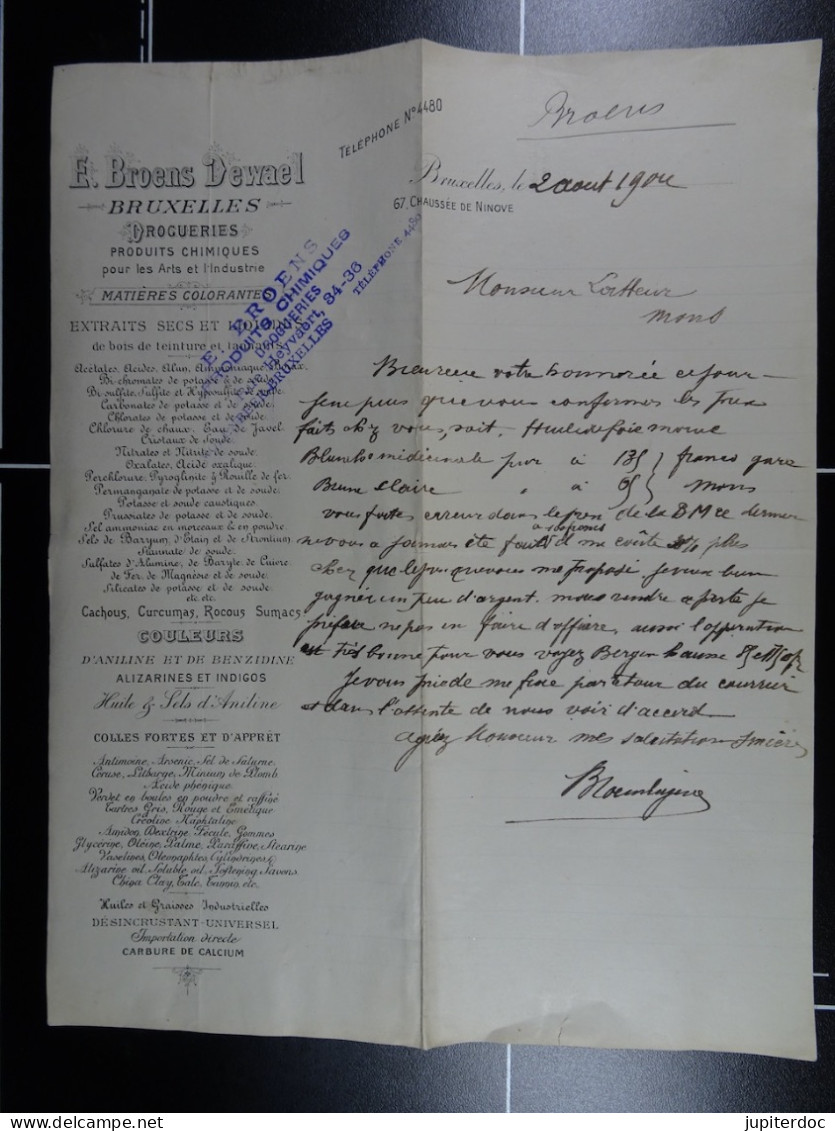 Broens
TÉLÉPHONE N° 4480
E. Broens Dewael
BRUXELLES
DROGUERIES
PRODUITS CHIMIQUES
pour les Arts et l'Industrie
MATIÈRES COLORANTES
EXTRAITS SECS ET
de bois de teinture et
Acétates, Acides, Alun,
Bi-chromates de potasse & de
Bi-sulfite, Sulfite et Hyposulfite de
Carbonates de potasse et de soude.
Chlorates de potasse et de soude.
Chlorure de chaux, Eau de Javel.
Cristaux de Soude.
Nitrates et Nitrite de soude.
Oxalates, Acide oxalique.
Perchlorure, Pyrolignite & Rouille de fer.
Permanganate de potasse et de soude.
Potasse et soude caustiques.
Prussiates de potasse et de soude.
Sel ammoniac en morceaux & en poudre.
Sels de Baryum, d'Etain et de Strontium.
Stannate de soude.
Sulfates d'Alumine, de Baryte, de Cuivre
de Fer, de Magnésie et de soude.
Silicates de potasse et de soude.
etc. etc.
Cachous, Curcumas, Rocous Sumacs
COULEURS
D'ANILINE ET DE BENZIDINE
ALIZARINES ET INDIGOS
Huile & Sels d'Aniline
COLLES FORTES ET D'APPRÊT
Antimoine, Arsenic, Sel de Saturne,
Céruse, Litharge, Minium de Plomb
Acide phénique.
Verdet en boules en poudre et raffiné
Tartres Gris, Rouge et Emétique
Créoline Naphtaline
Amidon, Dextrine, Fécule, Gommes
Glycérine, Oléine, Palme, Paraffine, Stéarine
Vaselines, Oléonaphtes, Cylindrines &
Alizarine oil, Soluble oil, Softening Savons
China Clay, Talc, Tannin, etc.
Huiles et Graisses Industrielles
DÉSINCRUSTANT-UNIVERSEL
Importation directe
CARBURE DE CALCIUM
E. BROENS
PRODUITS CHIMIQUES
DROGUERIES
Heyvaert, 34-36
BRUXELLES
TÉLÉPHONE 4480
Bruxelles, le 2 aout 1904
67, CHAUSSÉE DE NINOVE
Monsieur Latteur
Mons
votre honnorée ce jour
Je ne puis que vous confirmer les prix
faits chez vous, soit. Huile de foie morue
Blanche medicinale pur à 135 } franco gare
Brune claire " à 95 } Mons
vous faites erreur dans le prix de la
ne vous a jamais été fait il me coûte plus
cher que le prix que vous me proposé. Je veux bien
gagner un peu d'argent. mais vendre a perte je
préfère ne pas en faire d'affaire, aussi l'opperation
est très bonne pour vous voyez Bergen hausse
Je vous prie de me fixer par retour du courrier
et dans l'attente de nous voir d'accord
Agréez Monsieur mes salutations sincères
jupiterdoc